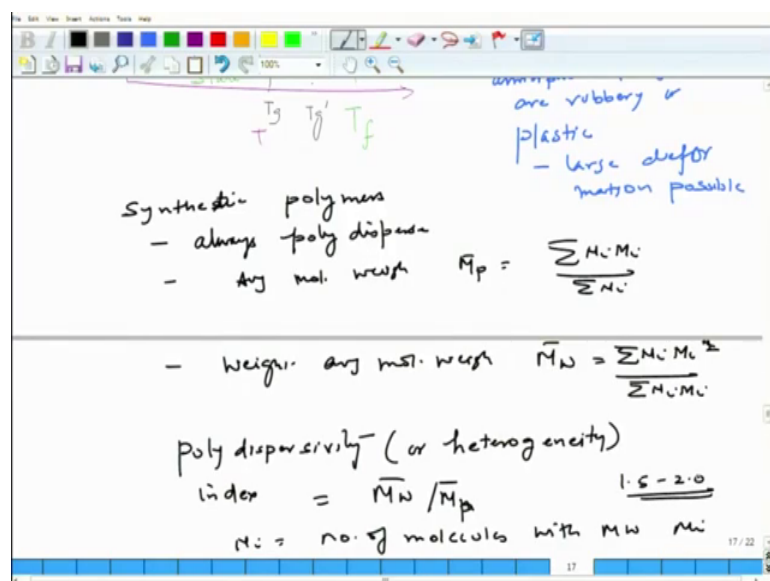 File Edit View Insert Actions Tools Help
B I
100%
are rubbery or
plastic
- large defor
mation possible
Tg Tg' Tf
T
Synthetic polymers
- always poly disperse
- Avg mol. weigh M̄p = ∑NiMi / ∑Ni
- Weight. avg mol. weigh M̄w = ∑NiMi² / ∑NiMi
poly dispersivity (or heterogeneity)
index = M̄w / M̄p 1.5 - 2.0
Ni = no. of molecules with MW Mi
17 / 22
17